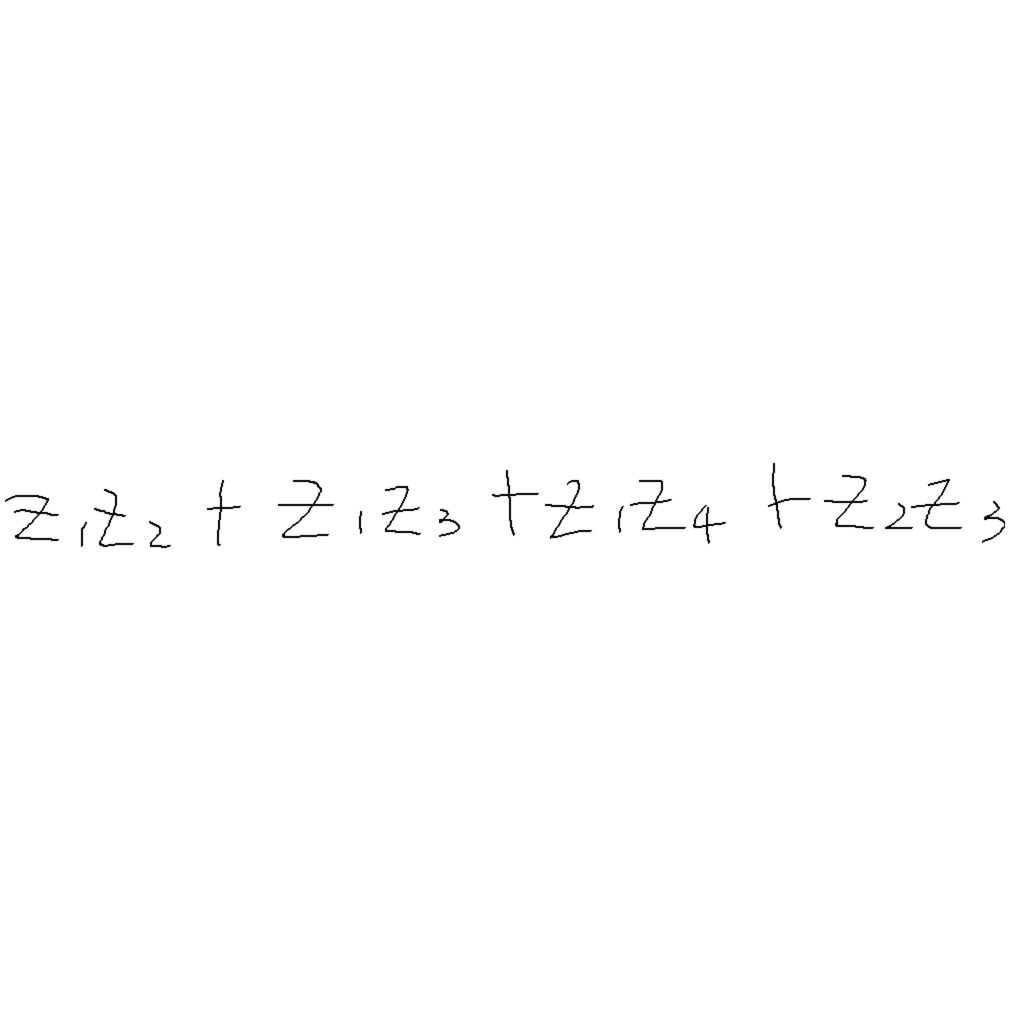 z₁z₂ + z₁z₃ + z₁z₄ + z₂z₃